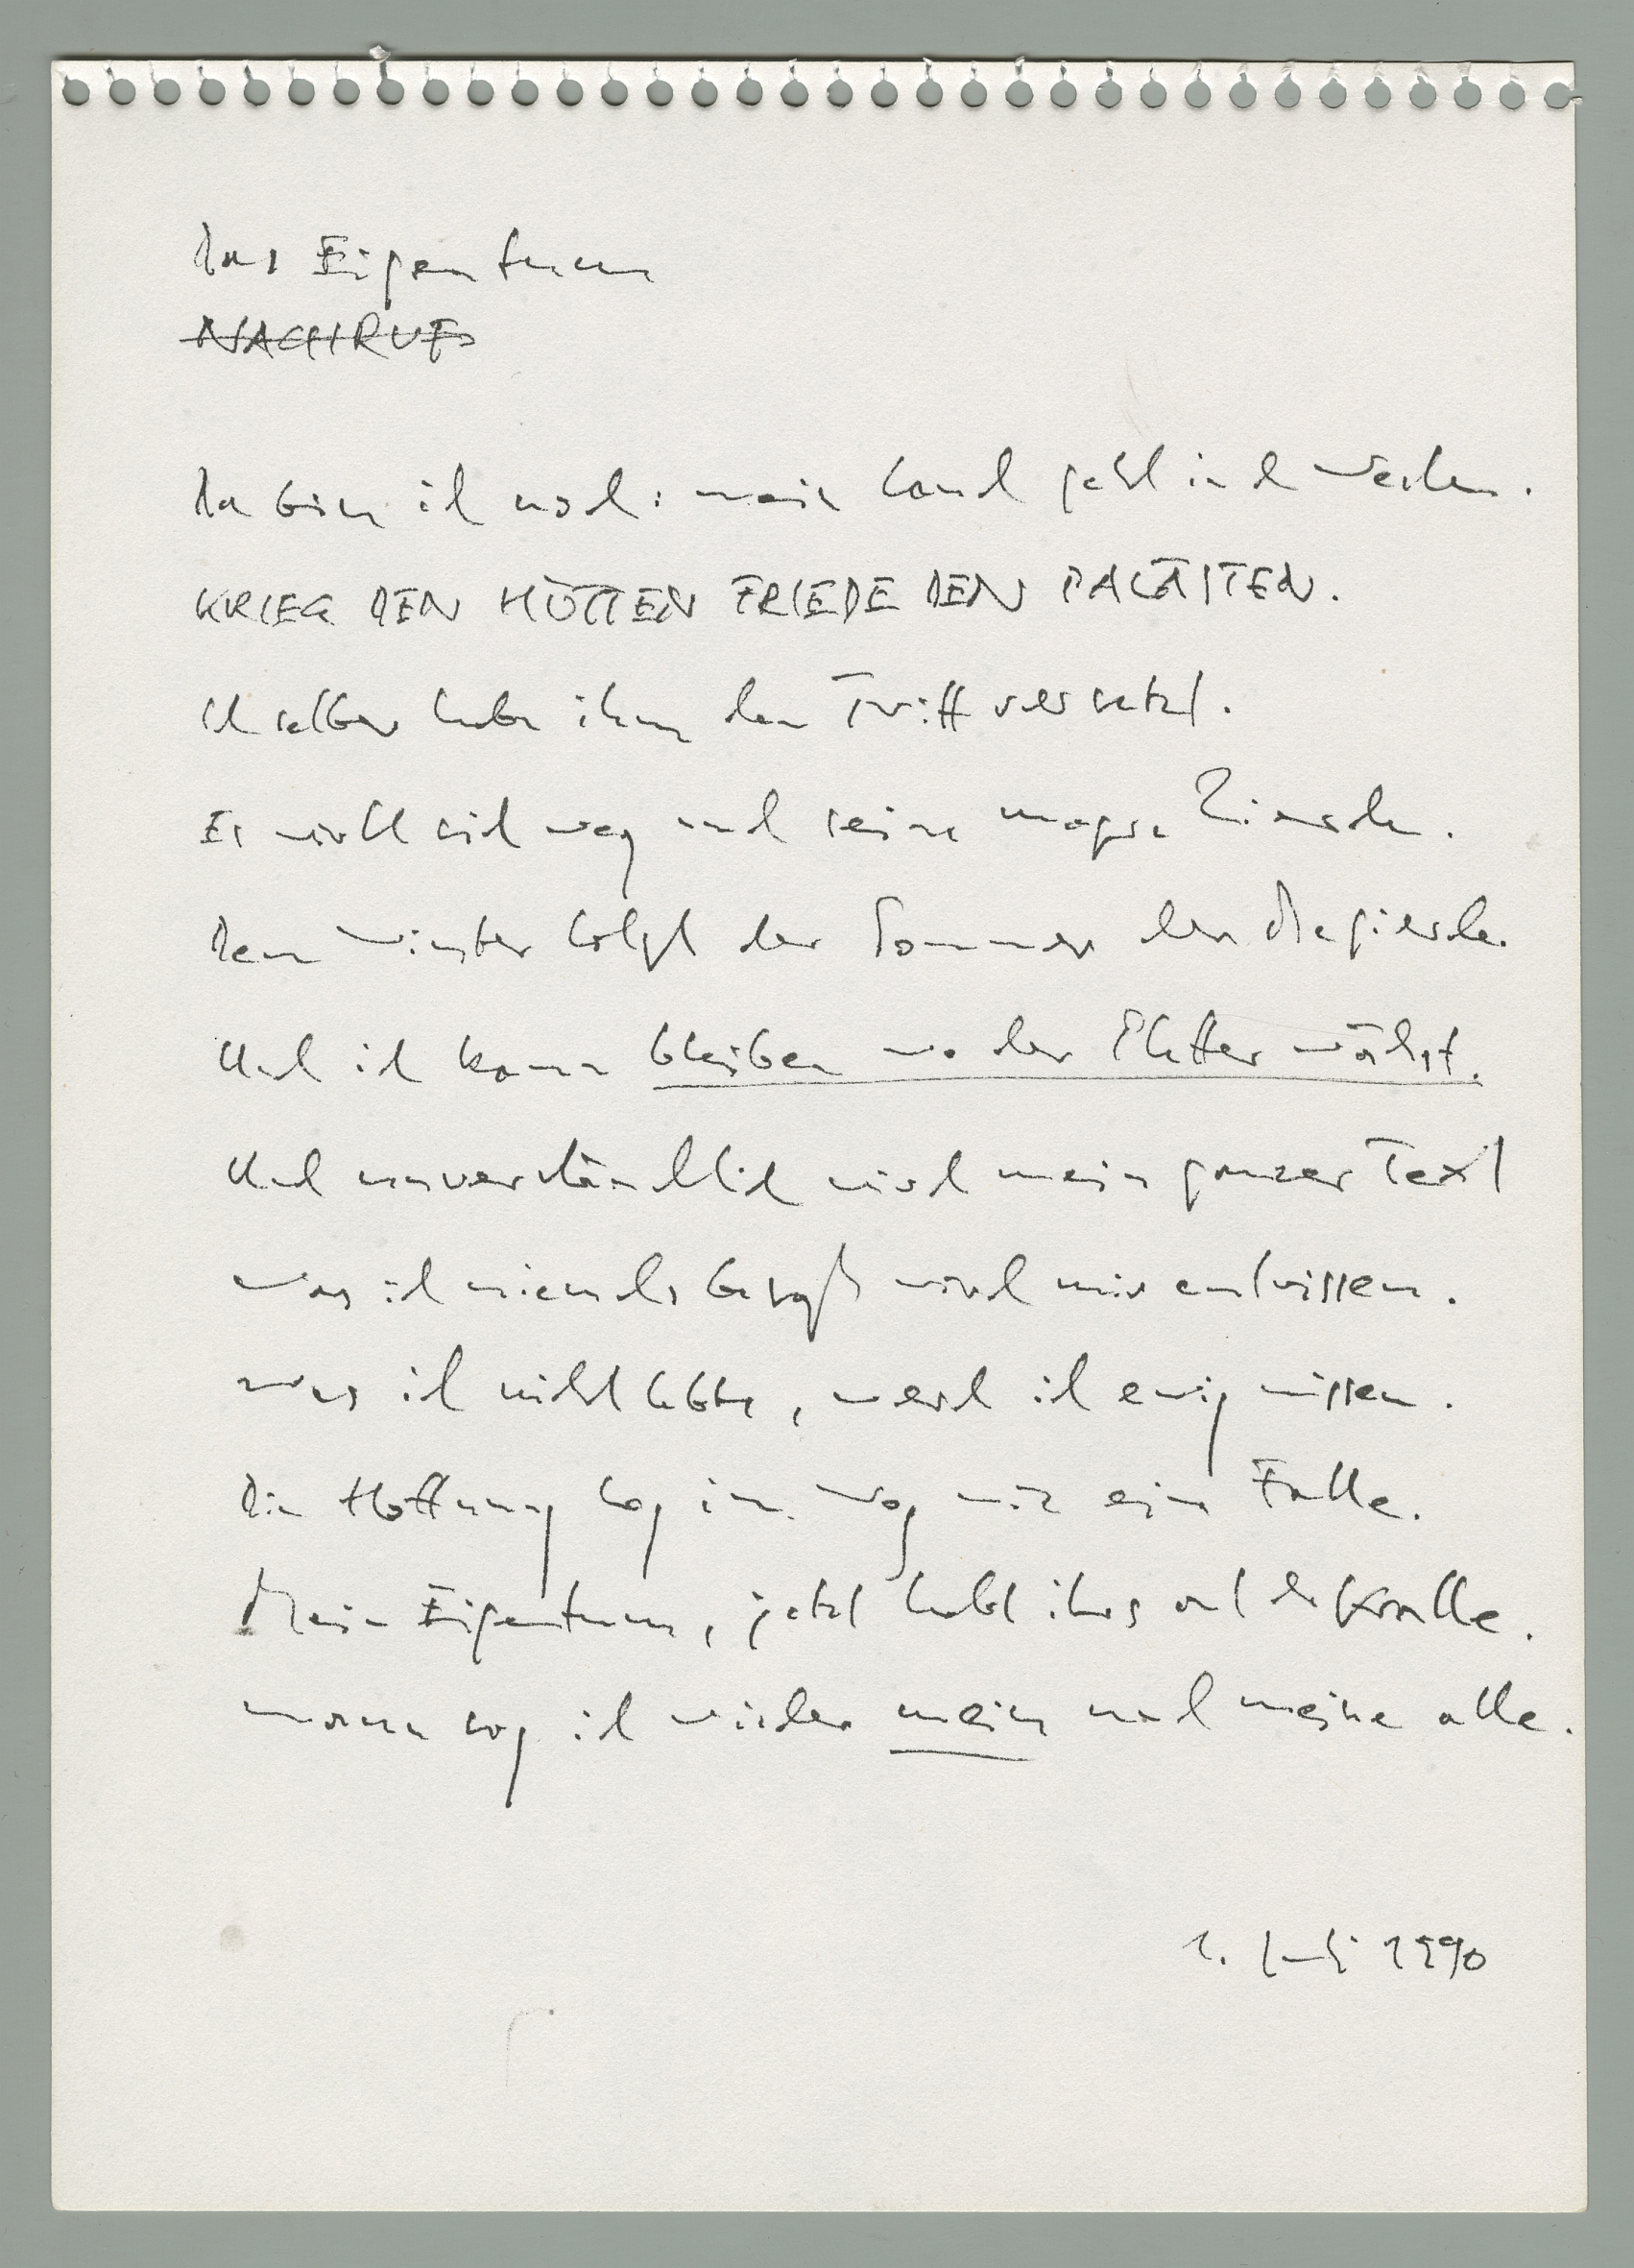 Das Eigentum
NACHRUF
Da bin ich noch: mein Land geht in d Westen.
KRIEG DEN HÜTTEN FRIEDE DEN PALÄSTEN.
Ich selber habe ihm den Tritt versetzt.
Es wirft sich weg und seine magre Zierde.
Dem Winter folgt der Sommer der Begierde.
Und ich kann bleiben wo der Pfeffer wächst.
Und unverständlich wird mein ganzer Text
Was ich niemals besaß wird mir entrissen.
Was ich nicht lebte, werd ich ewig missen.
Die Hoffnung lag im Weg wie eine Falle.
Mein Eigentum, jetzt habt ihrs auf der Kralle.
Wann sag ich wieder mein und meine alle.
1. Juli 1990